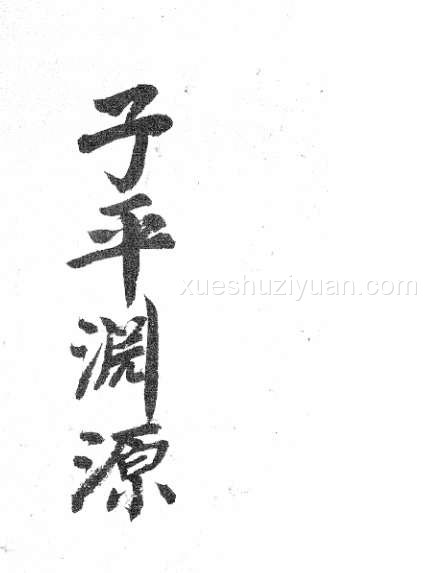 子平淵源
xueshuziyuan.com